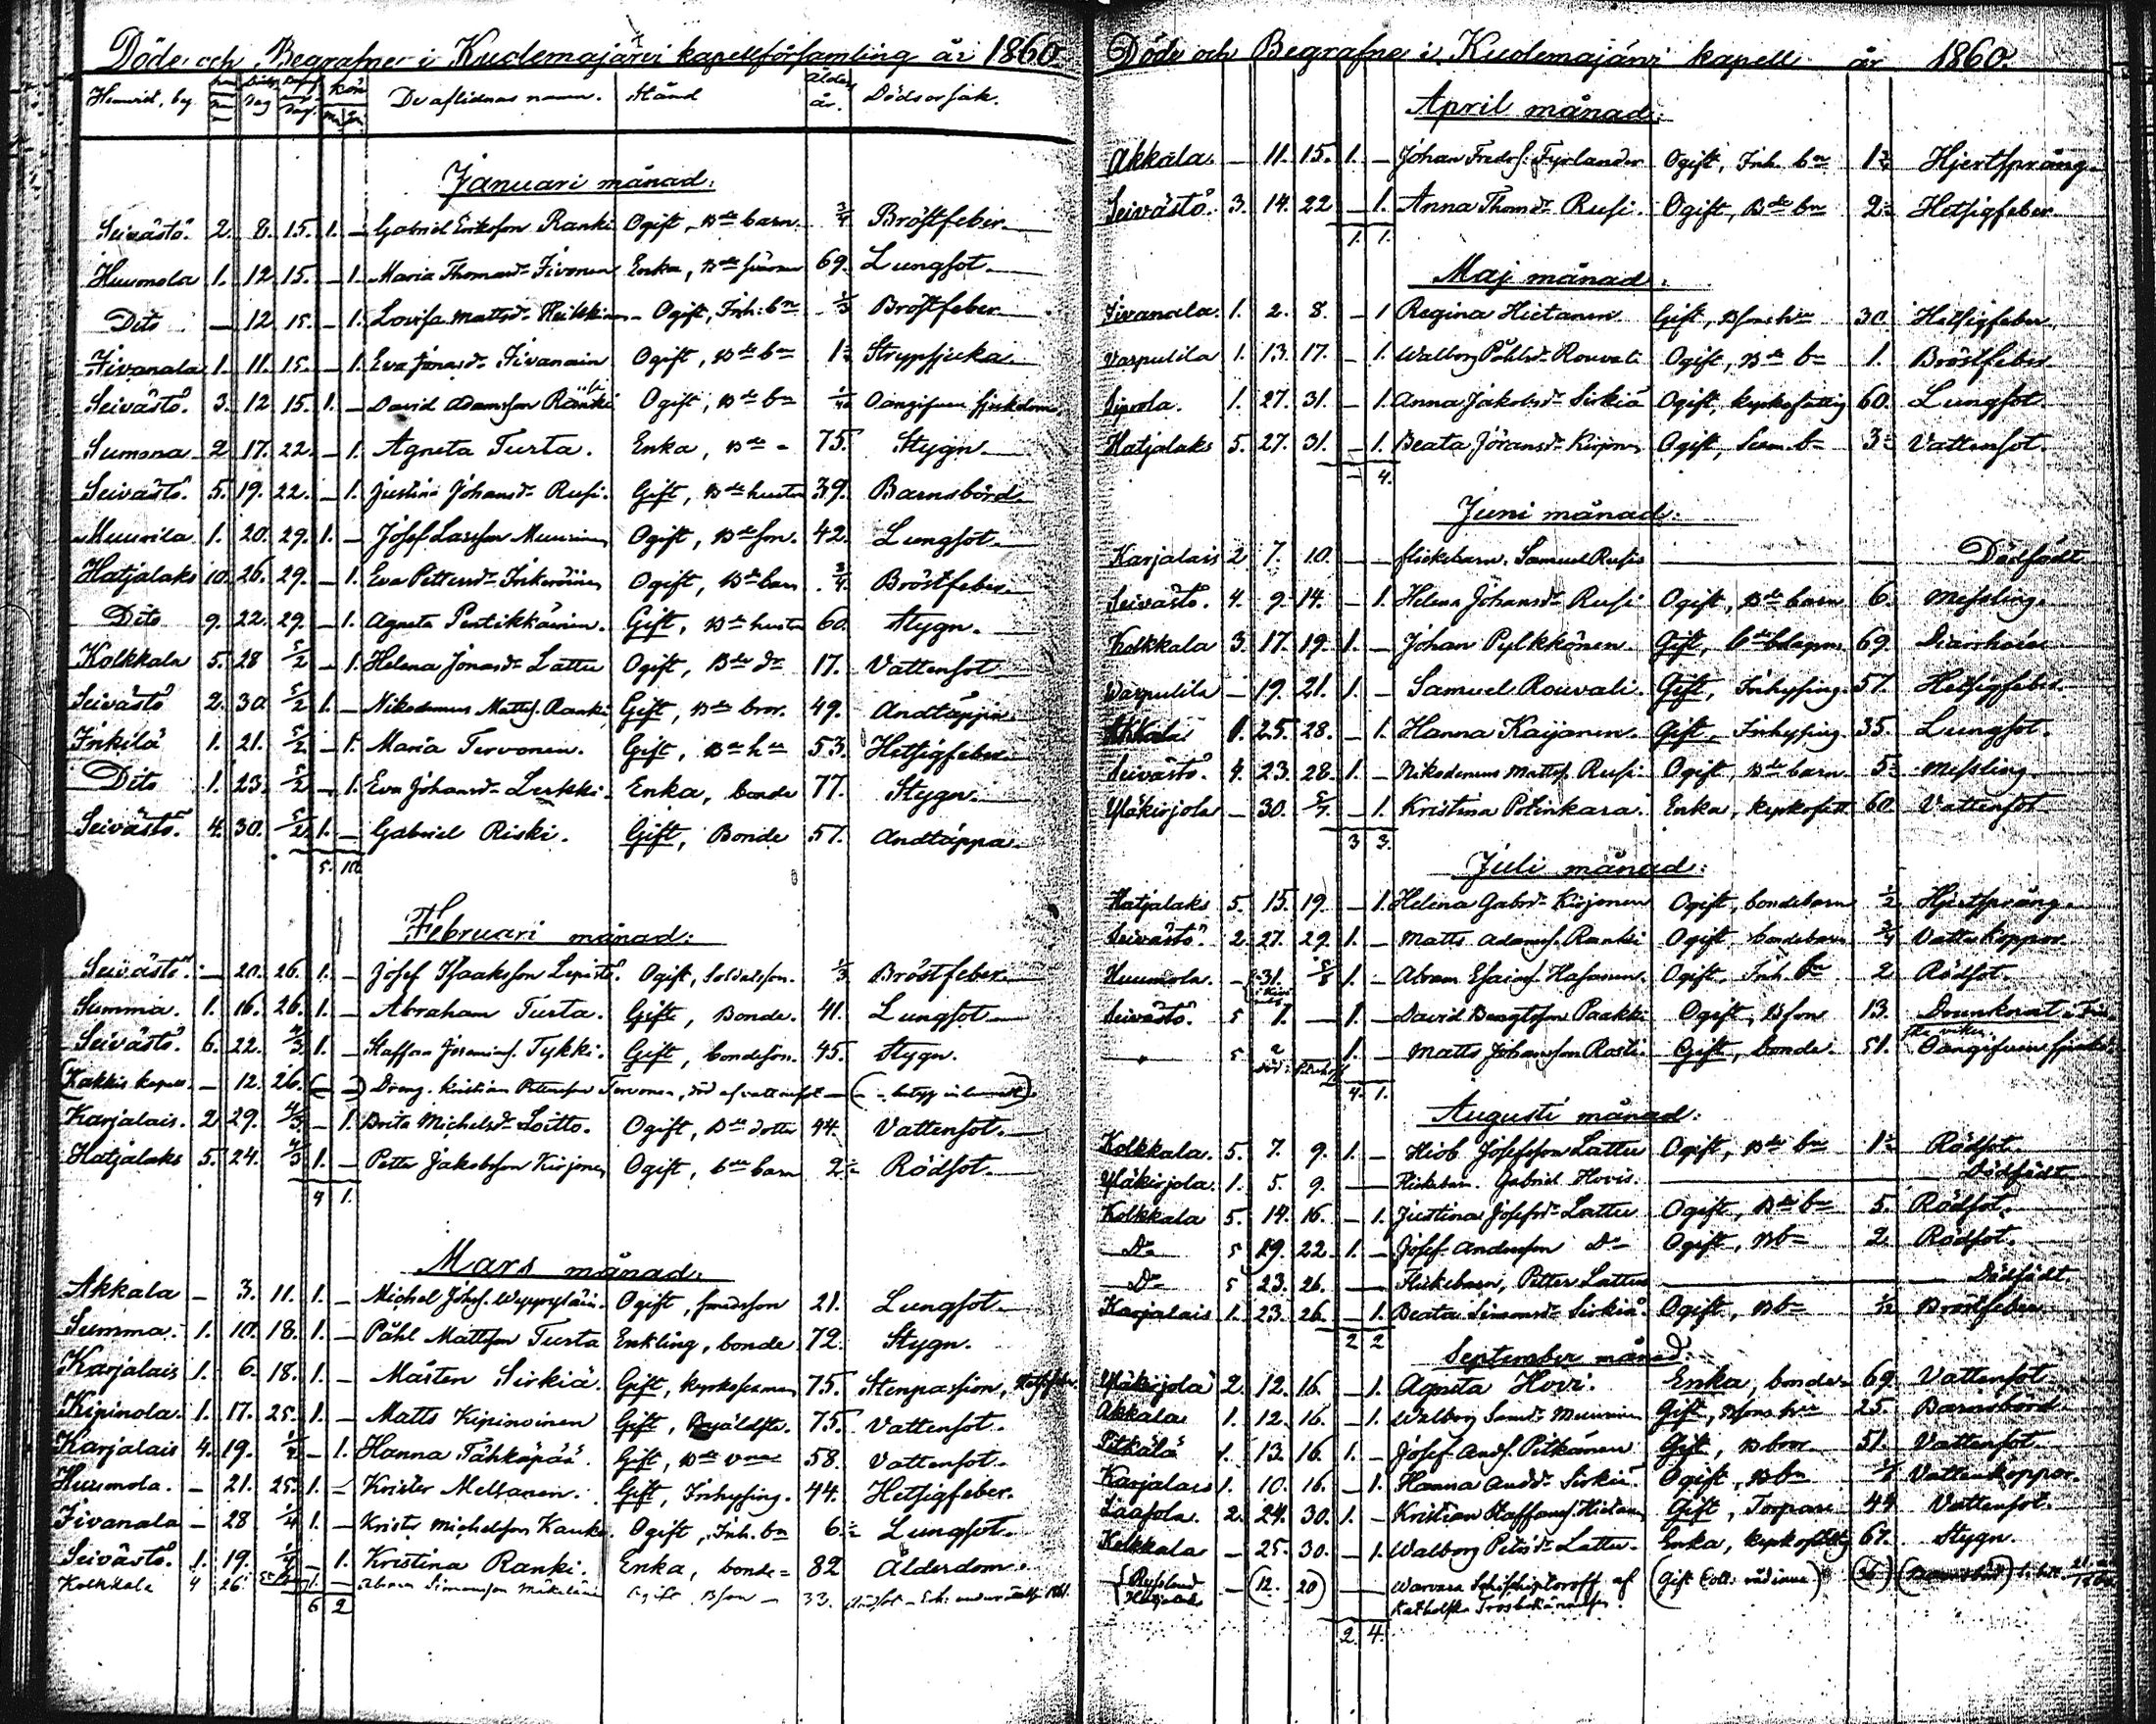 Döde och Begrafne i Kuolemajärvi kapellförsamling år 1860
Hemvist, by Döds dag Begr. dag kön De aflidnas namn. Stånd Ålder år. Dödsorsak.
Januari månad:
Seivästö. 2. 8. 15. 1. – Gabriel Eriksson Ranki Ogift, Bde barn. 3/4 Bröstfeber.
Huumola 1. 12 15. – 1. Maria Thomasdr Iivonen Enka, Bde 69. Lungsot
Dito — 12 15. – 1. Lovisa Mattsdr Heikkinen Ogift, Inh: bn 1/3 Bröstfeber
Iivanala 1. 11. 15. – 1. Eva Jonasdr Iivanain Ogift, Bde bn 1 1/2 Strypsjuka
Seivästö. 3. 12 15. 1. – David Adamsson Ranki Ogift, Bde bn Oangifven sjukdom
Sumona 2 17. 22. – 1. Agneta Turta. Enka, Bde 75. Stygn.
Seivästö. 5. 19. 22. – 1. Justina Johansdr Rusi. Gift, Bde hustru 39. Barnsbörd
Muurila 1. 20. 29. 1. – Josef Larsson Muurinen Ogift, Bde son. 42. Lungsot
Hatjalaks 10. 26. 29. – 1. Eva Pettersdr Inkeröinen Ogift, Bde barn 3/4 Bröstfeber
Dito 9. 22. 29. – 1. Agneta Pentikkäinen. Gift, Bde hustru 60. Stygn.
Kolkkala 5. 28 5/2 – 1. Helena Jonasdr Lattu Ogift, Bde dr 17. Vattensot
Seivästö 2. 30. 5/2 1. – Nikodemus Mattss. Ranki Gift, Bde bror. 49. Andtäppa
Inkilä 1. 21. 5/2 – 1. Maria Tervonen. Gift, Bde hu 53. Hetsigfeber
Dito 1. 23. 5/2 – 1. Eva Johansdr Lerkki. Enka, bonde 77. Stygn.
Seivästö. 4. 30. 5/2 1. – Gabriel Riski. Gift, Bonde 57. Andtäppa
5. 10.
Februari månad:
Seivästö. – 20. 26. 1. – Josef Isaaksson Lepistö. Ogift, Soldatson. 1/3 Bröstfeber
Summa. 1. 16. 26. 1. – Abraham Turta. Gift, Bonde. 41. Lungsot
Seivästö. 6. 22. 4/3 1. – Staffan Jeremiass. Tykki. Gift, bondeson. 45. Stygn.
(Kakkis kapell – 12. 26. (– –) Dreng. Kristian Pettersson Tervonen, död af vattensot
Karjalais. 2 29. 4/3 – 1. Brita Michelsdr Loitto. Ogift, Bde dotter 44. Vattensot.
Hatjalaks 5. 24. 4/3 1. – Petter Jakobsson Kirjonen Ogift, bde barn 2 1/2 Rödsot.
4 1.
Mars månad:
Akkala – 3. 11. 1. – Michel Johss. Weppsäläin. Ogift, smedsson 21. Lungsot
Summa. 1. 10. 18. 1. – Påhl Mattsson Turta Enkling, bonde 72. Stygn.
Karjalais 1. 6. 18. 1. – Mårten Sirkiä. Gift, kyrkosexman 75. Stenpassion,
Kipinola. 1. 17. 25. 1. – Matts Kipinoinen Gift, 75. Vattensot.
Karjalais 4. 19. 1/4 – 1. Hanna Tähkäpää. Gift, Bde 58. Vattensot.
Huumola. – 21. 25. 1. – Krister Meltanen. Gift, Inhysing. 44. Hetsigfeber.
Iivanala – 28 1/4 1. – Krister Michelsson Kauko. Ogift, Inh. bn 6 1/2 Lungsot.
Seivästö. 1. 19. 1/4 – 1. Kristina Ranki. Enka, bonde= 82 Ålderdom.
Kolkkala 4 26 1 – Abram Simonsson Mikeläin Ogift Bson – 33.
6 2
Döde och Begrafne i Kuolemajärvi kapell år 1860.
April månad:
Akkala. – 11. 15. 1. – Johan Fredrs. Fyrlander Ogift, Inh. bn 1 1/2 Hjertsprång
Seivästö. 3. 14. 22 – 1. Anna Thomdr Rusi. Ogift, Bde bn 2 1/2 Hetsigfeber
1. 1.
Maj månad:
Iivanala. 1. 2. 8. – 1 Regina Hietanen. Gift, Bsons hu 30. Hetsigfeber.
Varpulila 1. 13. 17. – 1. Walborg Påhlsdr Rouvali Ogift, Bde bn 1. Bröstfeber
Sipola. 1. 27. 31. – 1. Anna Jakobsdr Sirkiä Ogift, kyrkofattig 60. Lungsot
Hatjalaks 5. 27. 31. – 1. Beata Jöransdr Kirjonen Ogift, bn 3 1/2 Vattensot.
– 4.
Juni månad:
Karjalais 2 7. 10. – – flickebarn. Samuel Rusis Dödfödt
Seivästö. 4. 9. 14. – 1. Helena Johansdr Rusi Ogift, Bde barn 6. Messling.
Kolkkala 3. 17. 19. 1. – Johan Pylkkönen. Gift, 69. Diarrhoea
Warpulila – 19. 21. 1. – Samuel Rouvali. Gift, Inhysing. 57. Hetsigfeber
Akkala 1. 25. 28. – 1. Hanna Kaijanen. Gift, Inhysing 35. Lungsot.
Seivästö. 4. 23. 28. 1. – Nikodemus Mattss. Rusi. Ogift, Bde barn 5 1/2 Messling
Yläkirjola – 30. 5/7 – 1. Kristina Potinkara. Enka, kyrkofatt. 60. Vattensot
3 3.
Juli månad:
Hatjalaks 5. 15. 19. – 1. Helena Gabrdr Kirjonen Ogift, bondebarn 1/2 Hjertsprång
Seivästö. 2. 27. 29. 1. – Matts Adamss. Ranki Ogift bondebarn 3/4 Vattukoppor.
Huumola. – 31. 5/8 1. – Abram Esaiass. Hasanen. Ogift, Inh. bn 2 Rödsot.
Seivästö. 5 1. — 1. – David Bengtsson Paakki Ogift, Bson 13. Drunknat
— 5 2 1. – Matts Johansson Rasti. Gift, bonde. 51. Oangifven sjukd.
4. 1.
Augusti månad:
Kolkkala. 5. 7. 9. 1. – Hiob Josefsson Lattu Ogift, Bde bn 1 1/2 Rödsot.
Yläkirjola. 1. 5. 9. – Flickebarn. Gabriel Hovis. Dödfödt
Kolkkala 5. 14. 16. – 1. Justina Josefsdr Lattu Ogift, Bde bn 5. Rödsot.
Do 5 19. 22. 1. – Josef Andersson Do Ogift, Bbn 2 Rödsot.
Do 5 23. 26. – Flickebarn, Petter Lattus Dödfödt.
Karjalais 1. 23. 26. – 1. Beata Simonsdr Sirkiä. Ogift, Bbn 1/12 Bröstfeber
2 2
September månad:
Yläkirjola 2. 12. 16. – 1. Agneta Hovi. Enka, bonde= 69. Vattensot
Akkala 1. 12. 16. – 1. Walborg Samdr Muurinen Gift, Bsons hu 25. Barnsbörd
Pitkälä 1. 13. 16. 1. – Josef Ands. Pitkänen Gift, B bror. 51. Vattensot.
Karjalais 1. 10. 16. – 1. Hanna Anddr Sirkiä Ogift, Bbn Vattenkoppor.
Laasola. 2. 24. 30. 1. – Kristian Staffanss. Hietanen Gift, Torpare 44 Vattensot.
Kolkkala – 25. 30. – 1. Walborg Petersdr Lattu. Enka, kyrkofattig 67. Stygn.
Ryssland – 12. 20 – Warvara Schischiptoroff af (Gift Coll: rådinna) (36)
Hatjalaks Katholska Trosbekännelsen.
2 4.